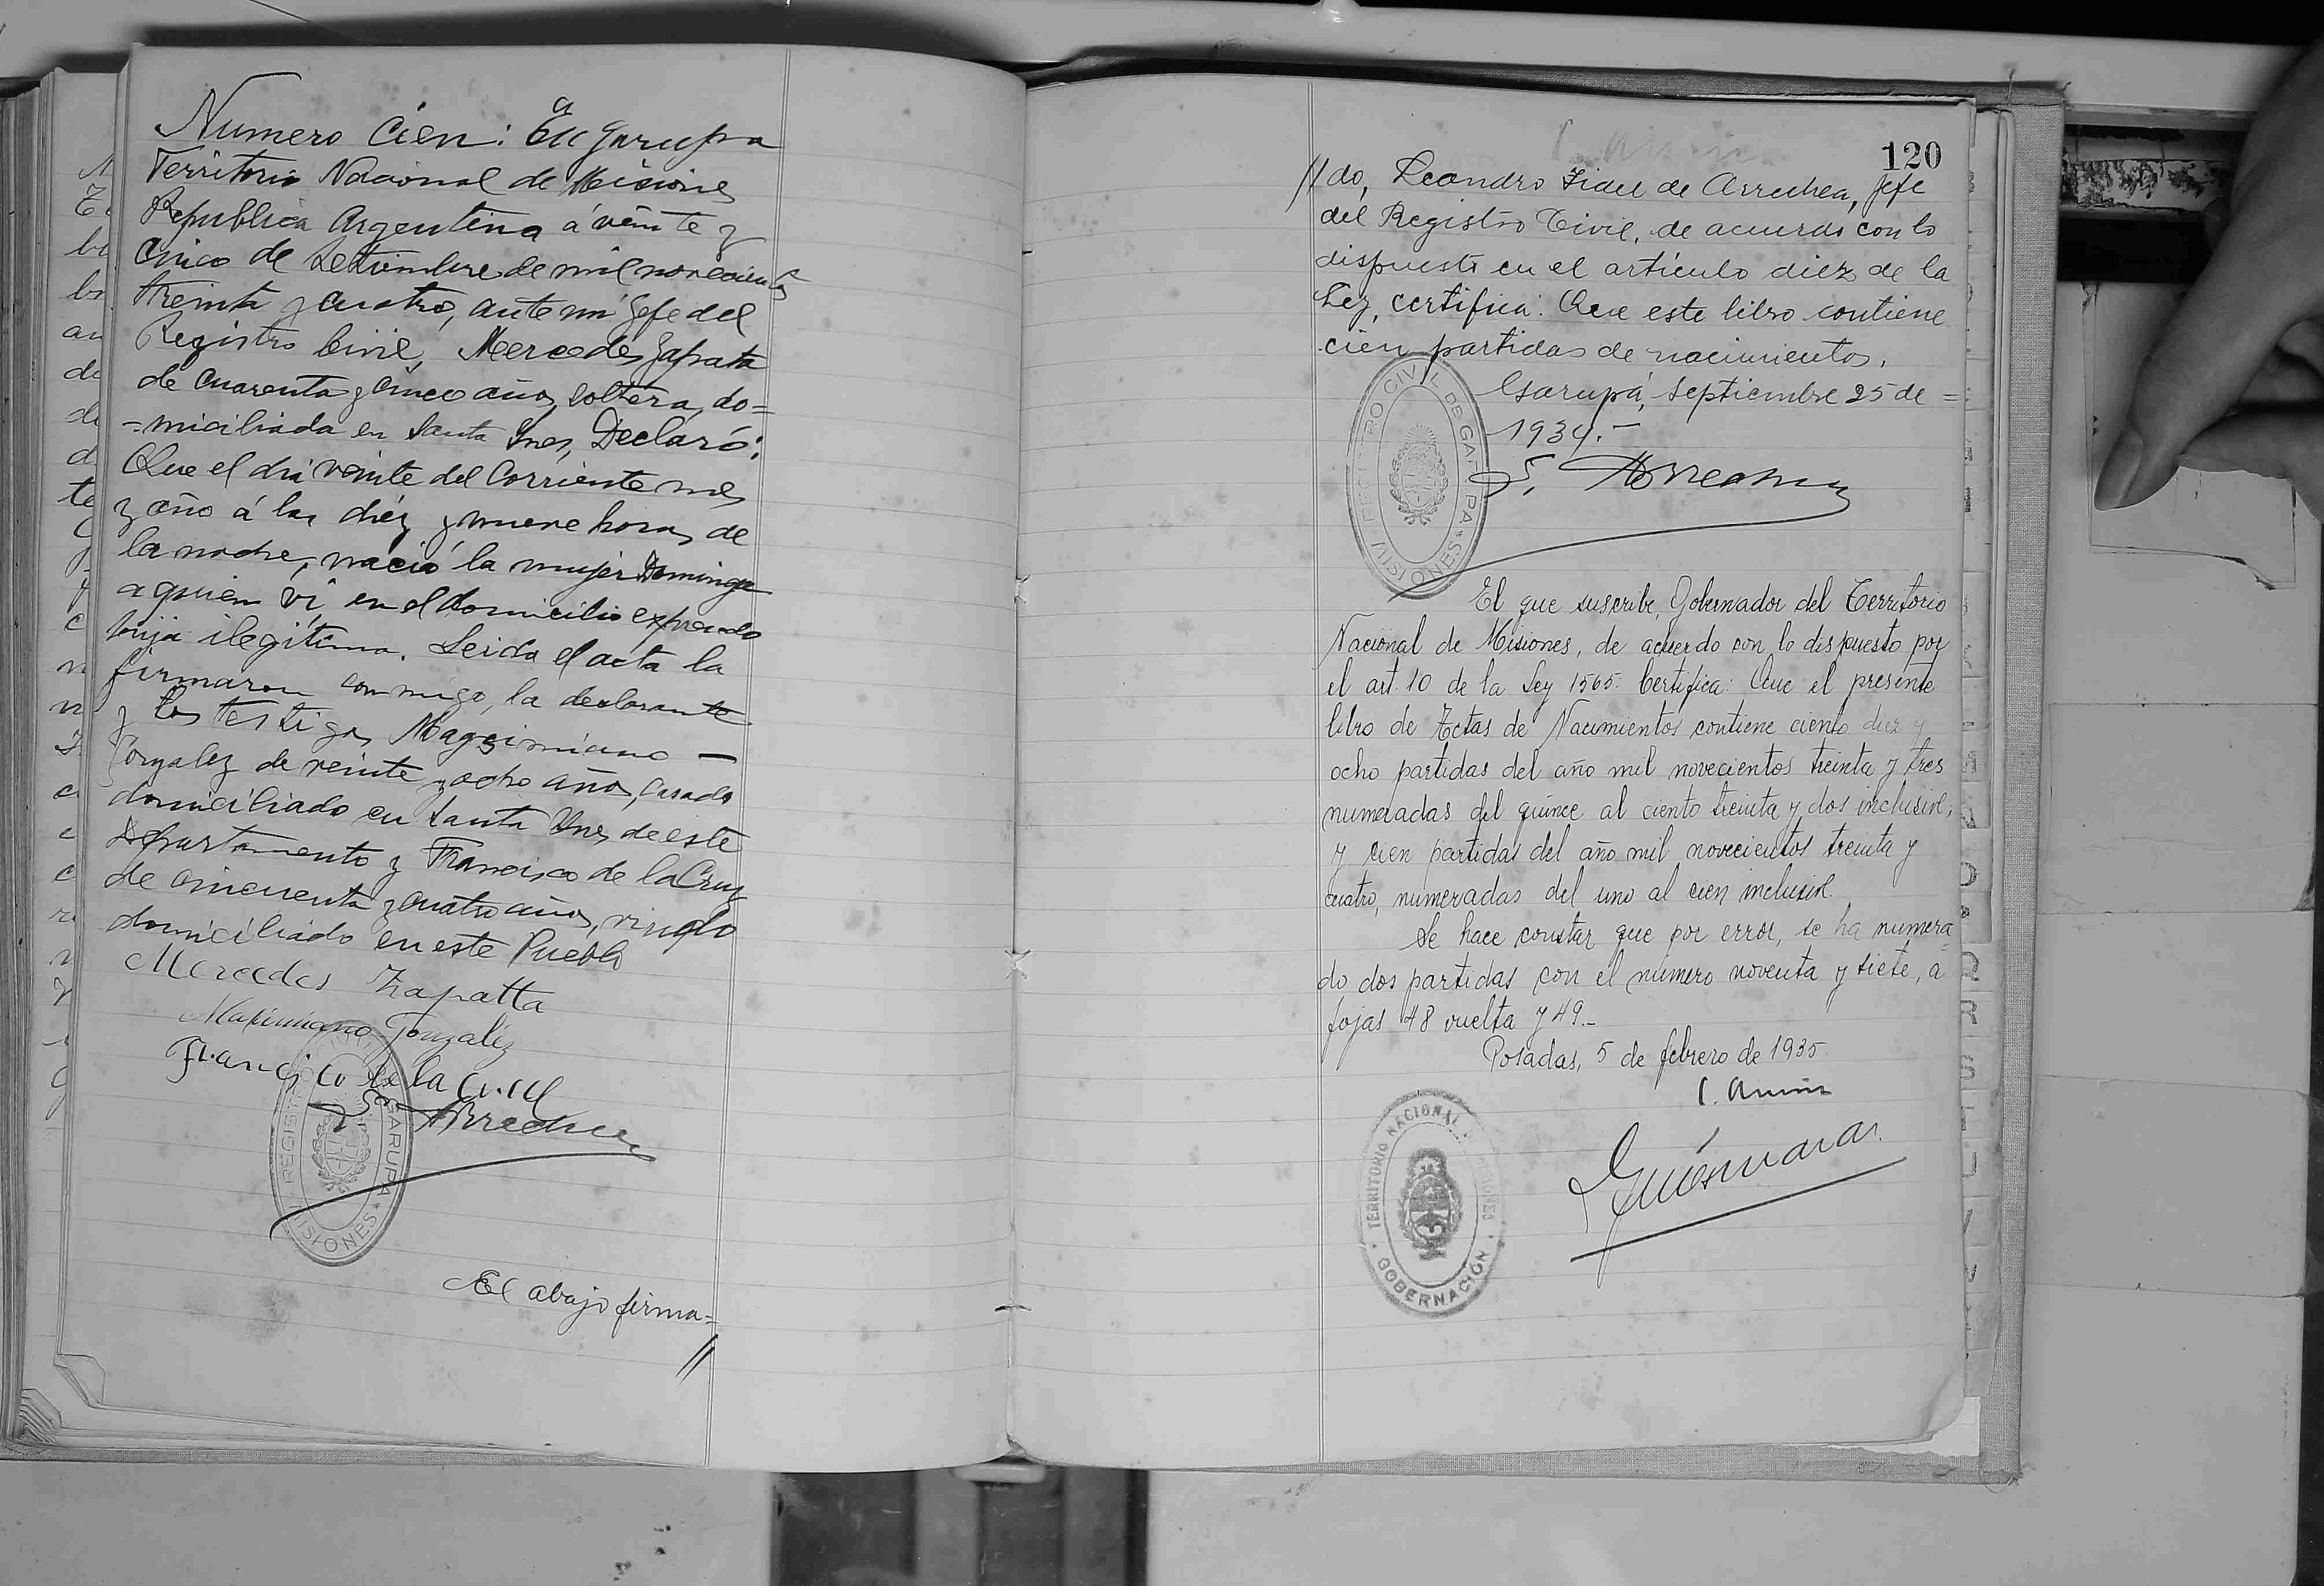 Numero Cien: En Garupa
Territorio Nacional de Misiones
Republica Argentina á veinte y
cinco de Setiembre de mil novecientos
treinta y cuatro, ante mi Jefe del
Registro Civil, Mercedes Zapata
de cuarenta y cinco años, soltera, do=
=miciliada en Santa Ines, Declaró:
Que el dia veinte del Corriente mes
y año á las diéz y nueve horas de
la noche, nació la mujer Dominga
a quien vi en el domicilio expresado
hija ilegitima. Leida el acta la
firmaron conmigo, la declarante
y los testigos Magsimiano —
Gonzalez de veinte y ocho años, casado
domiciliado en Santa Ines, de este
Departamento y Francisco de la Cruz
de cincuenta y cuatro años, viudo
domiciliado en este Pueblo
Mercedes Zapatta
Maximiano Gonzalez
Francisco de la Cruz
Arrechea
REGISTRO CIVIL DE GARUPA
MISIONES
El abajo firma=
//
120
//do, Leandro Fidel de Arrechea, Jefe
del Registro Civil, de acuerdo con lo
dispuesto en el artículo diez de la
Ley, certifica: Que este libro contiene
cien partidas de nacimientos.
Garupá, Septiembre 25 de =
1934.-
Arrechea
REGISTRO CIVIL DE GARUPA
MISIONES
El que suscribe, Gobernador del Territorio
Nacional de Misiones, de acuerdo con lo dispuesto por
el art. 10 de la Ley 1565: Certifica: Que el presente
libro de Actas de Nacimientos contiene ciento diez y
ocho partidas del año mil novecientos treinta y tres
numeradas del quince al ciento treinta y dos inclusive,
y cien partidas del año mil novecientos treinta y
cuatro, numeradas del uno al cien inclusive.
Se hace constar que por error, se ha numera
do dos partidas con el número noventa y siete, a
fojas 48 vuelta y 49.-
Posadas, 5 de febrero de 1935
TERRITORIO NACIONAL DE MISIONES
GOBERNACIÓN